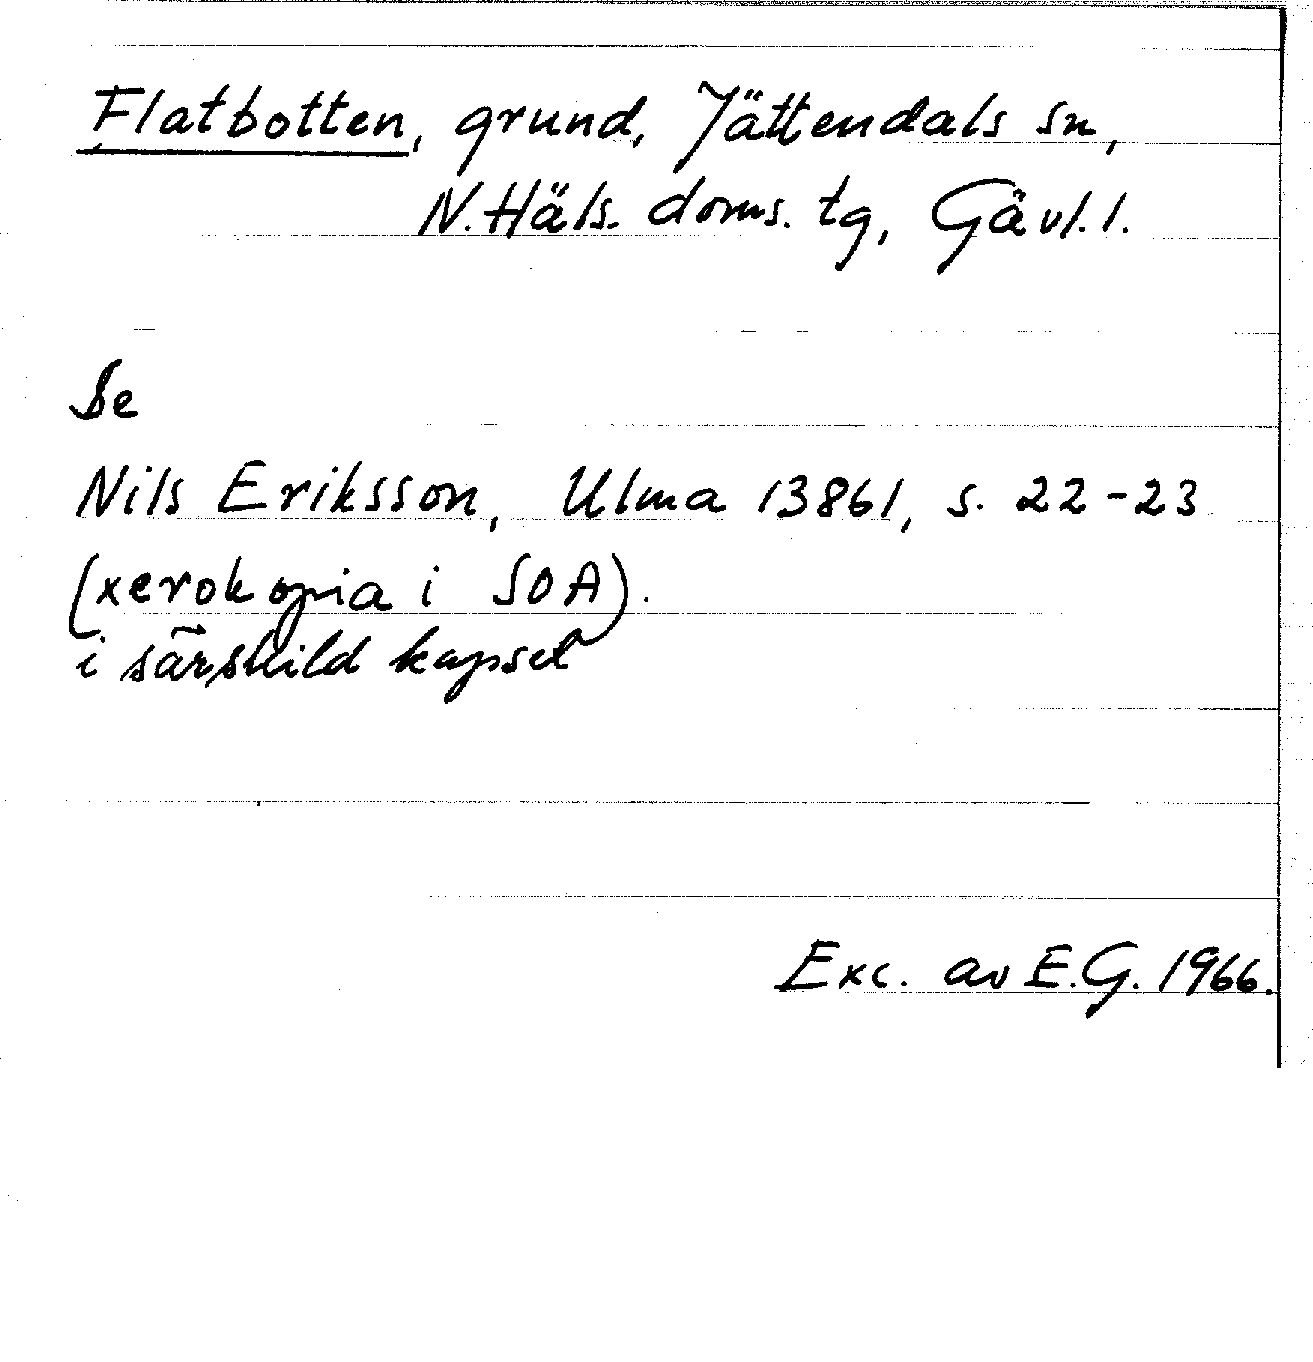 Flatbotten, grund, Jättendals sn,
N. Häls. doms. tg, Gävl. l.
Se
Nils Eriksson, Ulma 13861, s. 22-23
(xerokopia i SOA).
i särskild kapsel
Exc. av E.G. 1966.